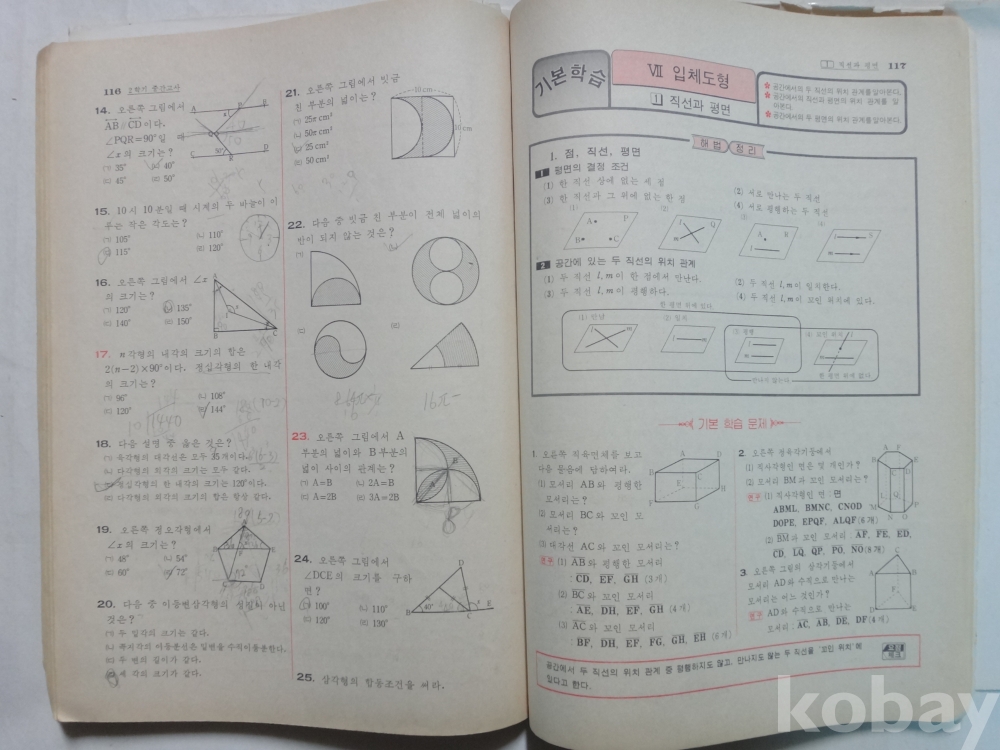 116 2학기 중간고사
14. 오른쪽 그림에서
AB∥CD이다.
∠PQR=90°일
∠x의 크기는?
㉠ 35° ㉡ 40°
㉢ 45° ㉣ 50°
15. 10시 10분일 때 시계의 두 바늘이 이
루는 작은 각도는?
㉠ 105° ㉡ 110°
㉢ 115° ㉣ 120°
16. 오른쪽 그림에서 ∠x
의 크기는?
㉠ 120° ㉡ 135°
㉢ 140° ㉣ 150°
17. n각형의 내각의 크기의 합은
2(n-2)×90°이다. 정십각형의 한 내각
의 크기는?
㉠ 96° ㉡ 108°
㉢ 120° ㉣ 144°
10 1440
18. 다음 설명 중 옳은 것은?
㉠ 육각형의 대각선은 모두 35개이다.
㉡ 다각형의 외각의 크기는 모두 같다.
정십각형의 한 내각의 크기는 120°이다.
㉣ 다각형의 외각의 크기의 합은 항상 같다.
19. 오른쪽 정오각형에서
∠x의 크기는?
㉠ 48° ㉡ 54°
㉢ 60° ㉣ 72°
20. 다음 중 이등변삼각형의 성질이 아닌
것은?
㉠ 두 밑각의 크기는 같다.
㉡ 꼭지각의 이등분선은 밑변을 수직이등분한다.
㉢ 두 변의 길이가 같다.
㉣ 세 각의 크기가 같다.
21. 오른쪽 그림에서 빗금
친 부분의 넓이는?
㉠ 25π cm²
㉡ 50π cm²
㉢ 25 cm²
㉣ 50 cm²
10 cm
10 cm
22. 다음 중 빗금 친 부분이 전체 넓이의
반이 되지 않는 것은?
16π-
23. 오른쪽 그림에서 A
부분의 넓이와 B부분의
넓이 사이의 관계는?
㉠ A=B ㉡ 2A=B
㉢ A=2B ㉣ 3A=2B
8
24. 오른쪽 그림에서
∠DCE의 크기를 구하
면?
㉠ 100° ㉡ 110°
㉢ 120° ㉣ 130°
25. 삼각형의 합동조건을 써라.
1 직선과 평면 117
기본학습
Ⅶ 입체도형
1 직선과 평면
☆ 공간에서의 두 직선의 위치 관계를 알아본다.
☆ 공간에서의 직선과 평면의 위치 관계를 알
아본다.
☆ 공간에서의 두 평면의 위치 관계를 알아본다.
해법 정리
1. 점, 직선, 평면
1 평면의 결정 조건
(1) 한 직선 상에 없는 세 점 (2) 서로 만나는 두 직선
(3) 한 직선과 그 위에 없는 한 점 (4) 서로 평행하는 두 직선
2 공간에 있는 두 직선의 위치 관계
(1) 두 직선 l, m이 한 점에서 만난다. (2) 두 직선 l, m이 일치한다.
(3) 두 직선 l, m이 평행하다. (4) 두 직선 l, m이 꼬인 위치에 있다.
한 평면 위에 있다
(1) 만남 (2) 일치 (3) 평행 (4) 꼬인 위치
만나지 않는다
한 평면 위에 없다
기본 학습 문제
1. 오른쪽 직육면체를 보고
다음 물음에 답하여라.
(1) 모서리 AB와 평행한
모서리는?
(2) 모서리 BC와 꼬인 모
서리는?
(3) 대각선 AC와 꼬인 모서리는?
(1) AB와 평행한 모서리
: CD, EF, GH (3개)
(2) BC와 꼬인 모서리
: AE, DH, EF, GH (4개)
(3) AC와 꼬인 모서리
: BF, DH, EF, FG, GH, EH (6개)
2. 오른쪽 정육각기둥에서
(1) 직사각형인 면은 몇 개인가?
(2) 모서리 BM과 꼬인 모서리는?
(1) 직사각형인 면 : 면
ABML, BMNC, CNOD
DOPE, EPQF, ALQF (6개)
(2) BM과 꼬인 모서리 : AF, FE, ED,
CD, LQ, QP, PO, NO (8개)
3. 오른쪽 그림의 삼각기둥에서
모서리 AD와 수직으로 만나는
모서리는 어느 것인가?
AD와 수직으로 만나는
모서리 : AC, AB, DE, DF (4개)
공간에서 두 직선의 위치 관계 중 평행하지도 않고, 만나지도 않는 두 직선을 '꼬인 위치'에
있다고 한다.
kobay